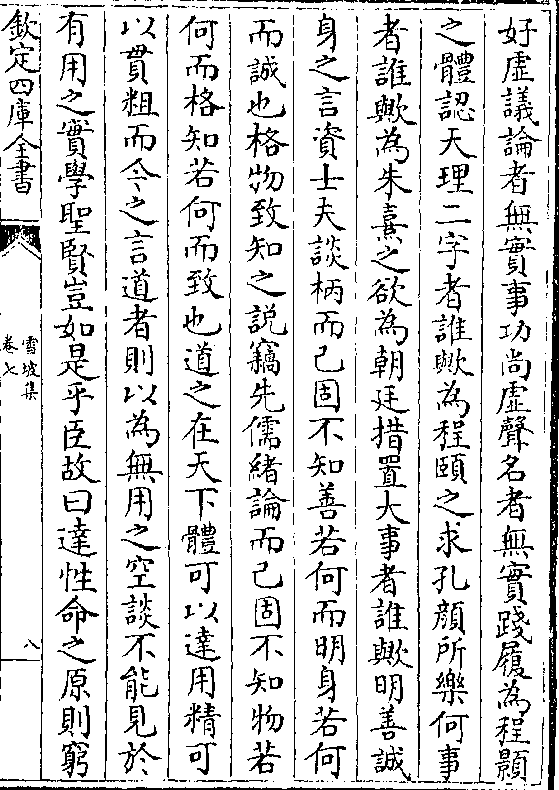 好虚議論者無實事功尚虚聲名者無實踐履為程顥
之體認天理二字者誰歟為程頤之求孔顔所樂何事
者誰歟為朱熹之欲為朝廷措置大事者誰歟明善誠
身之言資士夫談柄而已固不知善若何而明身若何
而誠也格物致知之説竊先儒緒論而已固不知物若
何而格知若何而致也道之在天下體可以達用精可
以貫粗而今之言道者則以為無用之空談不能見於
有用之實學聖賢豈如是乎臣故曰達性命之原則窮
欽定四庫全書
雪坡集
卷七
八